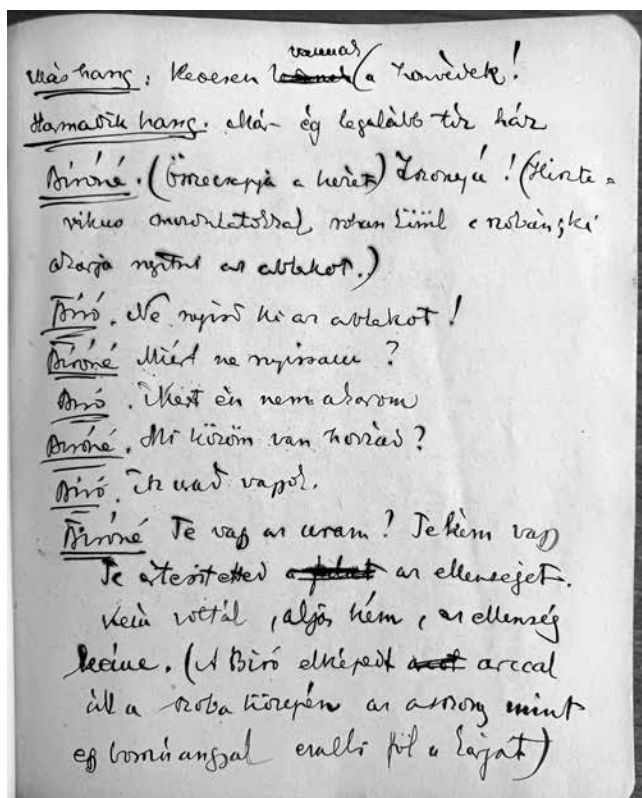 Más hang: Kevesen vannak a honvédek!
Harmadik hang. Már ég legalább tíz ház
Biróné. (Összecsapja a kezét) Iszonyú! (Hiszte-
rikus mozdulatokkal rohan a szobán, ki
akarja nyitni az ablakot.)
Biró. Ne nyisd ki az ablakot!
Biróné Miért ne nyissam?
Biró. Mert én nem akarom
Biróné. Mi közöm van hozzád?
Biró. Az urad vagyok.
Biróné Te vagy az uram? Te kém vagy
Te értesitetted az ellenséget.
Kém voltál, aljas kém, az ellenség
kéme. (A Biró elképedt arccal
áll a szoba közepén az asszony mint
egy bosszúangyal emelli föl a karját)